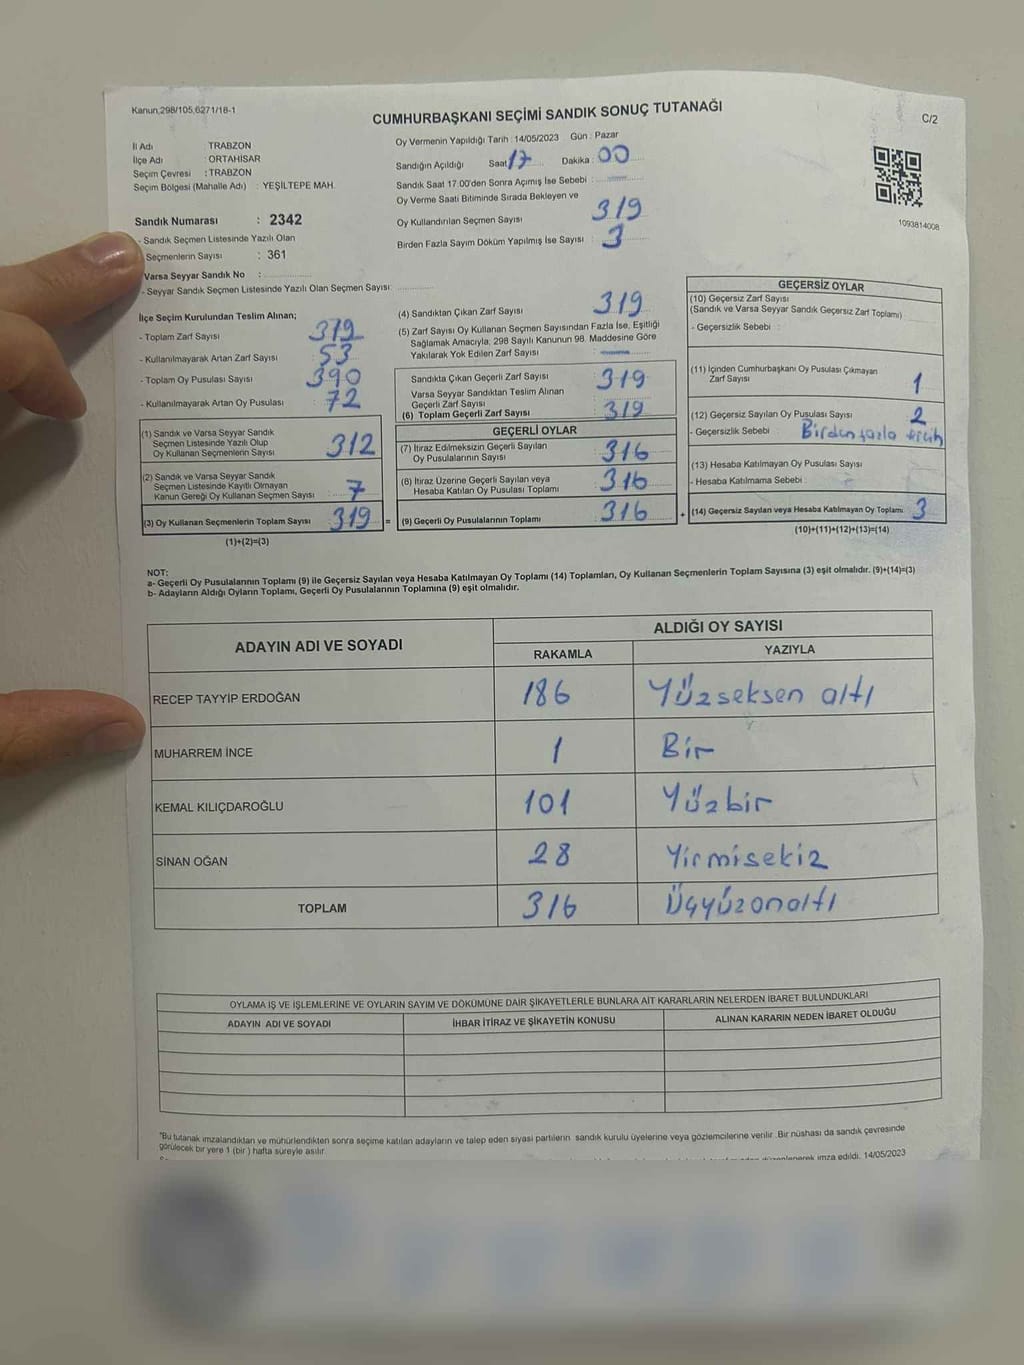 Kanun,298/105,6271/18-1
CUMHURBAŞKANI SEÇİMİ SANDIK SONUÇ TUTANAĞI
C/2
İl Adı TRABZON
İlçe Adı : ORTAHİSAR
Seçim Çevresi : TRABZON
Seçim Bölgesi (Mahalle Adı) : YEŞİLTEPE MAH.
Oy Vermenin Yapıldığı Tarih : 14/05/2023 Gün : Pazar
Sandığın Açıldığı Saat 17 Dakika : 00
Sandık Saat 17.00'den Sonra Açımış İse Sebebi :
Oy Verme Saati Bitiminde Sırada Bekleyen ve
Oy Kullandırılan Seçmen Sayısı 319
Birden Fazla Sayım Döküm Yapılmış İse Sayısı 3
1093814008
Sandık Numarası : 2342
- Sandık Seçmen Listesinde Yazılı Olan
Seçmenlerin Sayısı : 361
Varsa Seyyar Sandık No :
- Seyyar Sandık Seçmen Listesinde Yazılı Olan Seçmen Sayısı:
İlçe Seçim Kurulundan Teslim Alınan;
- Toplam Zarf Sayısı
- Kullanılmayarak Artan Zarf Sayısı : 53
- Toplam Oy Pusulası Sayısı 390
- Kullanılmayarak Artan Oy Pusulası : 72
(1) Sandık ve Varsa Seyyar Sandık
Seçmen Listesinde Yazılı Olup
Oy Kullanan Seçmenlerin Sayısı 312
(2) Sandık ve Varsa Seyyar Sandık
Seçmen Listesinde Kayıtlı Olmayan
Kanun Gereği Oy Kullanan Seçmen Sayısı 7
(3) Oy Kullanan Seçmenlerin Toplam Sayısı 319 =
(1)+(2)=(3)
(4) Sandıktan Çıkan Zarf Sayısı 319
(5) Zarf Sayısı Oy Kullanan Seçmen Sayısından Fazla İse, Eşitliği
Sağlamak Amacıyla, 298 Sayılı Kanunun 98. Maddesine Göre
Yakılarak Yok Edilen Zarf Sayısı :
Sandıkta Çıkan Geçerli Zarf Sayısı 319
Varsa Seyyar Sandıktan Teslim Alınan
Geçerli Zarf Sayısı
(6) Toplam Geçerli Zarf Sayısı 319
GEÇERLİ OYLAR
(7) İtiraz Edilmeksizin Geçerli Sayılan
Oy Pusulalarının Sayısı 316
(8) İtiraz Üzerine Geçerli Sayılan veya
Hesaba Katılan Oy Pusulası Toplamı 316
(9) Geçerli Oy Pusulalarının Toplamı 316
GEÇERSİZ OYLAR
(10) Geçersiz Zarf Sayısı
(Sandık ve Varsa Seyyar Sandık Geçersiz Zarf Toplamı)
- Geçersizlik Sebebi :
(11) İçinden Cumhurbaşkanı Oy Pusulası Çıkmayan
Zarf Sayısı 1
(12) Geçersiz Sayılan Oy Pusulası Sayısı 2
- Geçersizlik Sebebi : Birden fazla
(13) Hesaba Katılmayan Oy Pusulası Sayısı
- Hesaba Katılmama Sebebi :
+ (14) Geçersiz Sayılan veya Hesaba Katılmayan Oy Toplamı 3
(10)+(11)+(12)+(13)=(14)
NOT:
a- Geçerli Oy Pusulalarının Toplamı (9) ile Geçersiz Sayılan veya Hesaba Katılmayan Oy Toplamı (14) Toplamları, Oy Kullanan Seçmenlerin Toplam Sayısına (3) eşit olmalıdır. (9)+(14)=(3)
b- Adayların Aldığı Oyların Toplamı, Geçerli Oy Pusulalarının Toplamına (9) eşit olmalıdır.
ADAYIN ADI VE SOYADI
ALDIĞI OY SAYISI
RAKAMLA YAZIYLA
RECEP TAYYİP ERDOĞAN 186 Yüzseksen altı
MUHARREM İNCE 1 Bir
KEMAL KILIÇDAROĞLU 101 Yüzbir
SİNAN OĞAN 28 Yirmisekiz
TOPLAM 316 Üçyüzonaltı
OYLAMA İŞ VE İŞLEMLERİNE VE OYLARIN SAYIM VE DÖKÜMÜNE DAİR ŞİKAYETLERLE BUNLARA AİT KARARLARIN NELERDEN İBARET BULUNDUKLARI
ADAYIN ADI VE SOYADI İHBAR İTİRAZ VE ŞİKAYETİN KONUSU ALINAN KARARIN NEDEN İBARET OLDUĞU
"Bu tutanak imzalandıktan ve mühürlendikten sonra seçime katılan adayların ve talep eden siyasi partilerin sandık kurulu üyelerine veya gözlemcilerine verilir. Bir nüshası da sandık çevresinde
görülecek bir yere 1 (bir ) hafta süreyle asılır.
düzenlenerek imza edildi. 14/05/2023